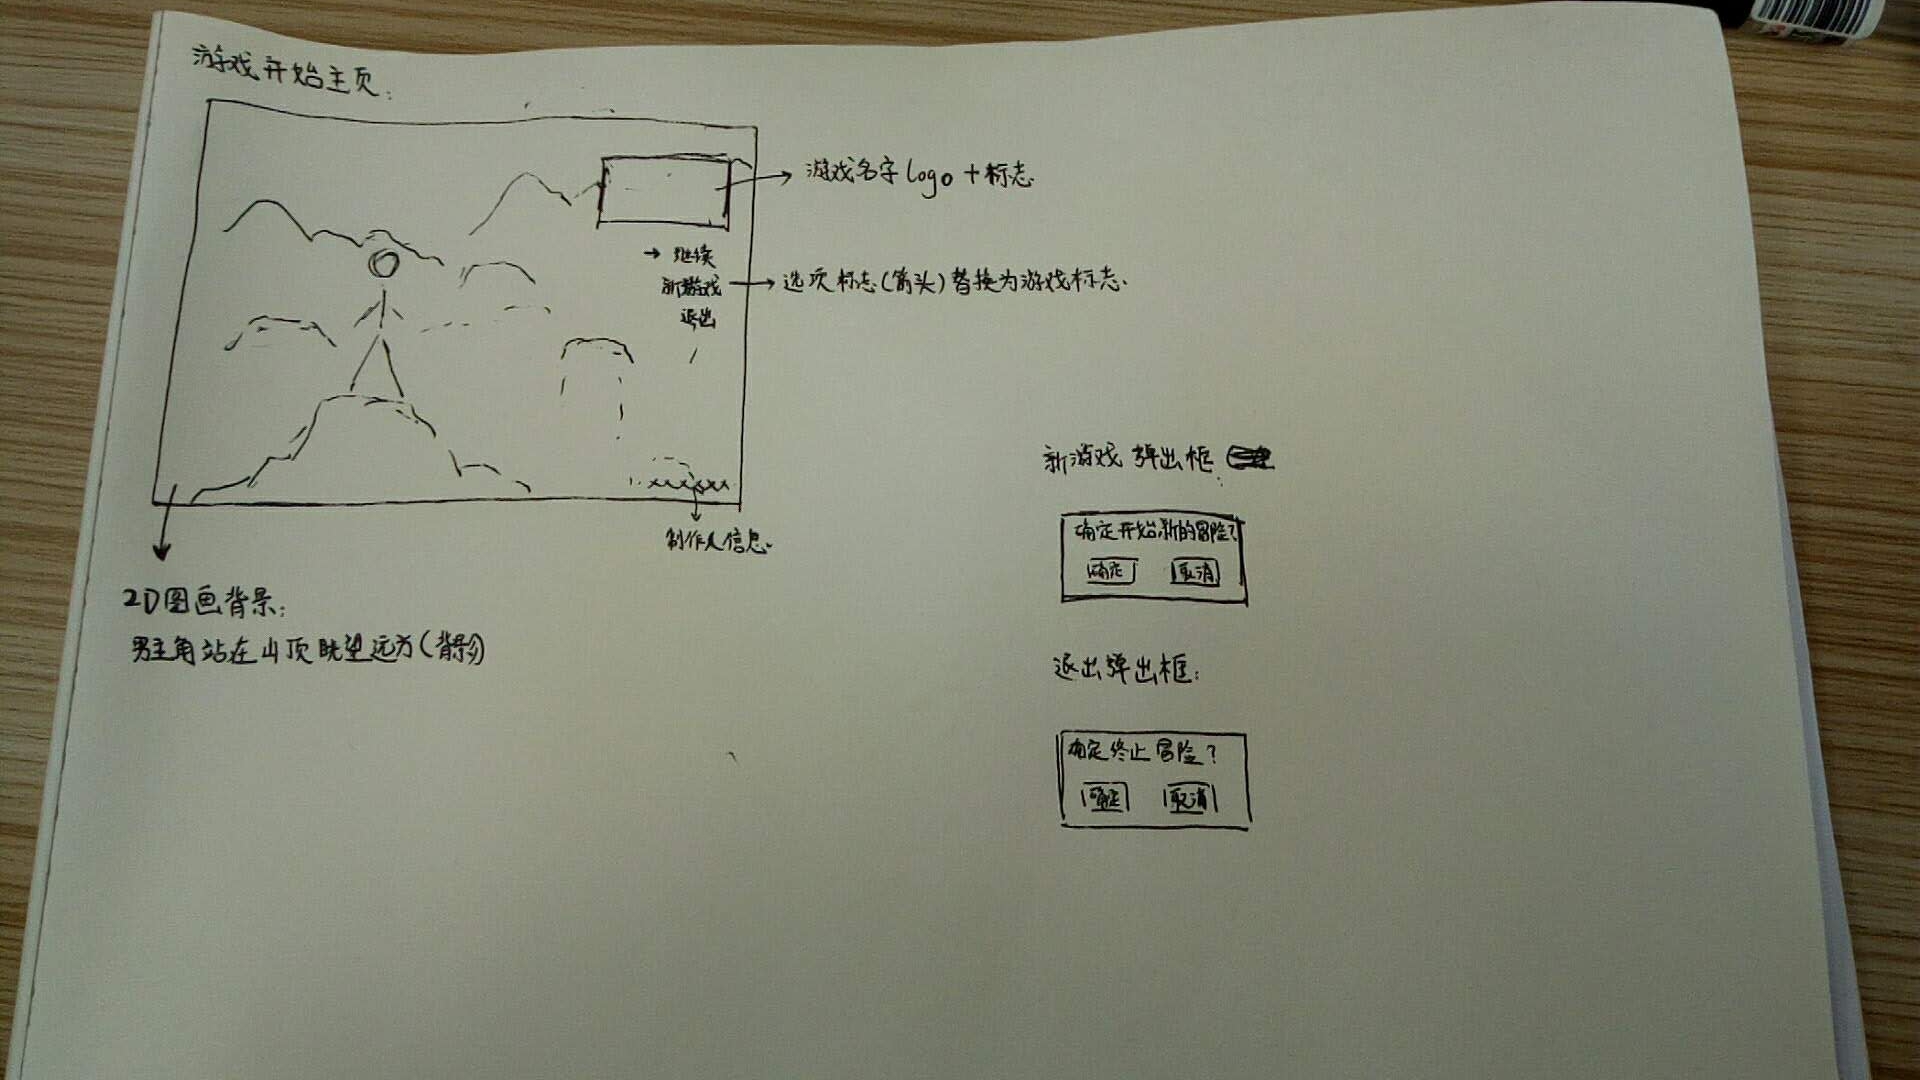 游戏开始主页:
游戏名字 logo + 标志
→ 继续
新游戏
退出
选项标志(箭头)替换为游戏标志.
xxxxxx
制作人信息.
2D图画背景:
男主角站在山顶眺望远方(背影)
新游戏 弹出框:
确定开始新的冒险?
确定 取消
退出弹出框:
确定终止冒险?
确定 取消